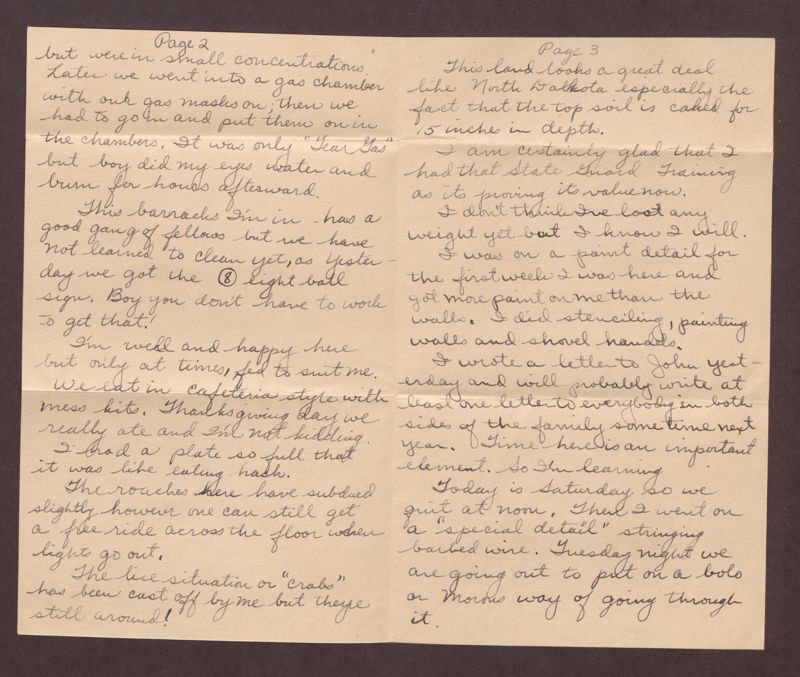 Page 2
but were in small concentrations.
Later we went into a gas chamber
with our gas masks on; then we
had to go in and put them on in
the chambers. It was only "Tear Gas"
but boy did my eyes water and
burn for hours afterward.
This barracks I'm in has a
good gang of fellows but we have
not learned to clean yet, as yester-
day we got the 8 eight ball
sign. Boy you don't have to work
to get that!
I'm well and happy here
but only at times, fed to suit me.
We eat in cafeteria style with
mess kits. Thanksgiving day we
really ate and I'm not kidding.
I had a plate so full that
it was like eating hash.
The roaches here have subdued
slightly however one can still get
a free ride across the floor when
lights go out.
The lice situation or "crabs"
has been cast off by me but they're
still around!
Page 3
This land looks a great deal
like North Dakota especially the
fact that the top soil is caked for
15 inches in depth.
I am certainly glad that I
had that State Guard Training
as its proving its value now.
I don't think I've lost any
weight yet but I know I will.
I was on a paint detail for
the first week I was here and
got more paint on me than the
walls. I did stenciling, painting
walls and shovel handels.
I wrote a letter to John yest-
erday and will probably write at
least one letter to everybody in both
sides of the family some time next
year. Time here is an important
element. So I'm learning
Today is Saturday so we
quit at noon. Then I went on
a "special detail" stringing
barbed wire. Tuesday night we
are going out to put on a bolo
or Moros way of going through
it.